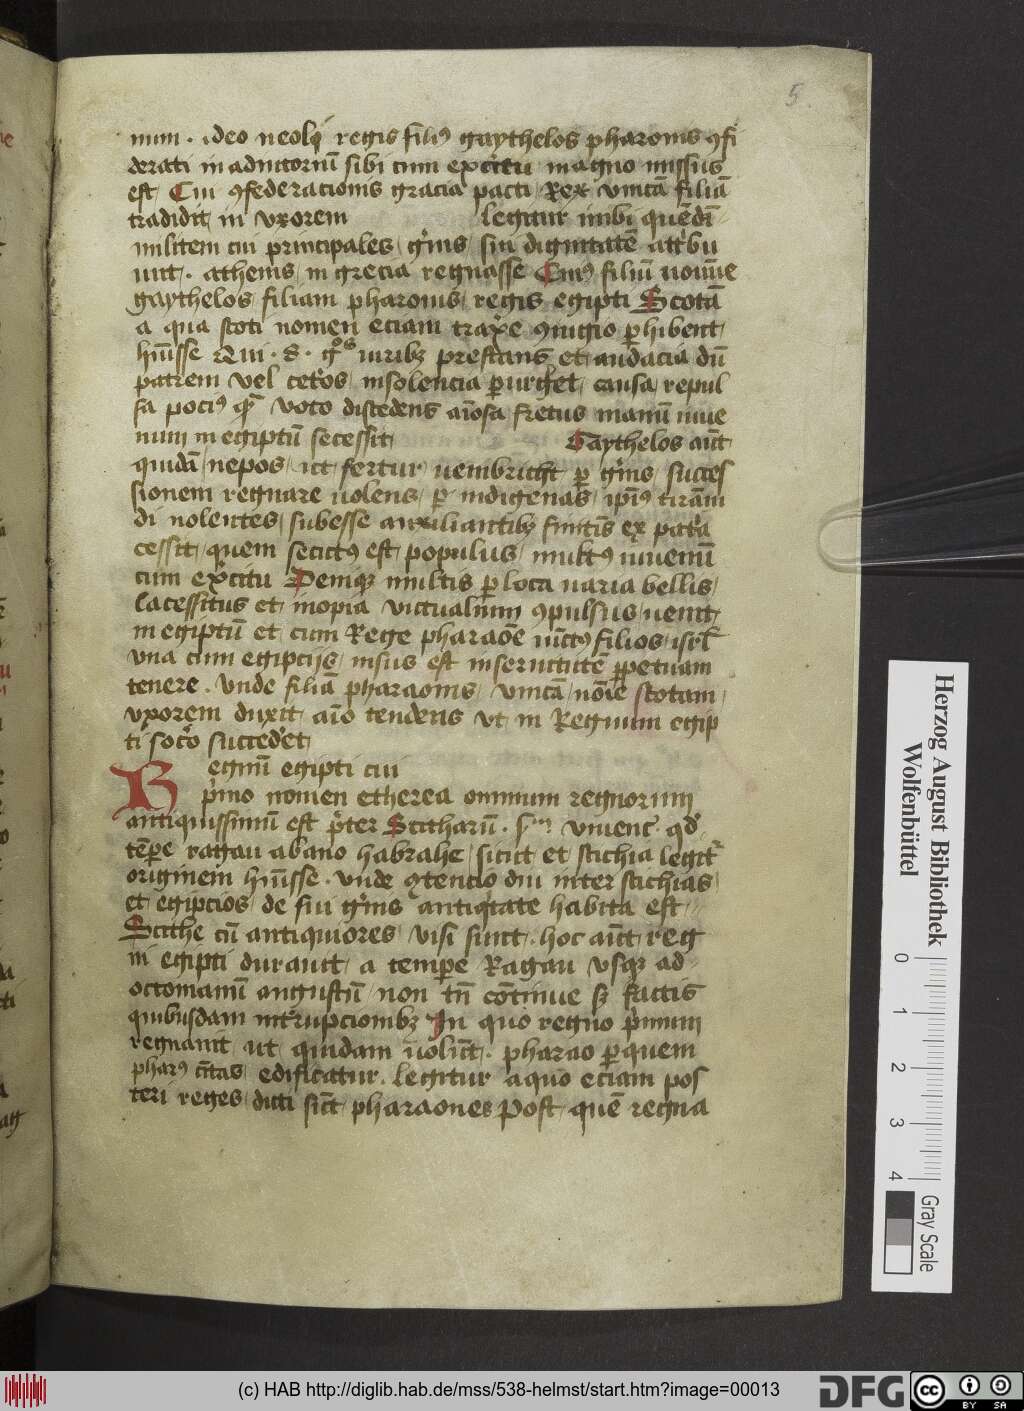 5.
num . ideo neolq̄ regis filiꝰ gaythelos pharonis ꝯfe
derati in adiutoriū sibi cum excitu magno missus
est Cui ꝯfederacionis gracia pacti Rex vnicā filiā
tradidit in vxorem legitur inibi quēdā
militem cui principales gn̄is sui dignitatē attbu
unt . athenis in grecia regnasse Cuiꝰ filiū noīne
gaythelos filiam pharonis regis egipti Scotā
a qua scoti nomen eciam traxe ꝯiugio ꝑhibent
hūisse Qui
patrem vel cetos insolencia ꝑurget causa repul
sa pociꝰ ꝙ voto discedens aīosa fretus manū iuue
num in egiptū secessit Gaythelos aūt
quidā nepos ut fertur nembricht ꝑ gn̄is succes
sionem regnare nolens ꝑ indigenas ipīꝰ tirāni
di nolentes subesse auxiliantibꝫ finitīs ex patia
cessit quem secutꝰ est populus multꝰ iuuenū
cum excitu Demiqꝫ multis ꝑ loca uaria bellis
lacessitus et inopia victualium ꝯpulsus uenit
in egiptū et cum Rege pharaōe iūctꝰ filios isrl̄
vna cum egipcijs nisus est in seruitutē ꝑpetuam
tenere . Vnde filiā pharaonis vnicā noīe scotam
vxorem duxit aīo tendens vt in Regnum egip
ti soco succedet
Regnū egipti cui
pimo nomen etherea omnium regnorum
antiquissimū est pter Scitharū . vincenc̄ qd
tēꝑe ragau abauo habrahe sicut et scichia legit
originem hūisse . vnde ꝯtencio diu inter scichias
et egipcios de sui gn̄is antiqitate habita est
Scithe cū antiquiores visi sunt . hoc aūt reg
m̄ egipti durauit a tempe Ragau vsqꝫ ad
octomanū augustū non tn̄ cōtinue sꝫ factis
quibusdam int̄rupcionibꝫ In quo regno pimum
regnauit ut quidam uolūt . pharao ꝑ quem
pharꝰ ciūtas edificatur . legitur a quo eciam pos
teri reges dicti sūt pharaones Post quē regna
Herzog August Bibliothek
Wolfenbüttel
0
1
2
3
4
Gray Scale
(c) HAB http://diglib.hab.de/mss/538-helmst/start.htm?image=00013
DFG
cc
BY SA